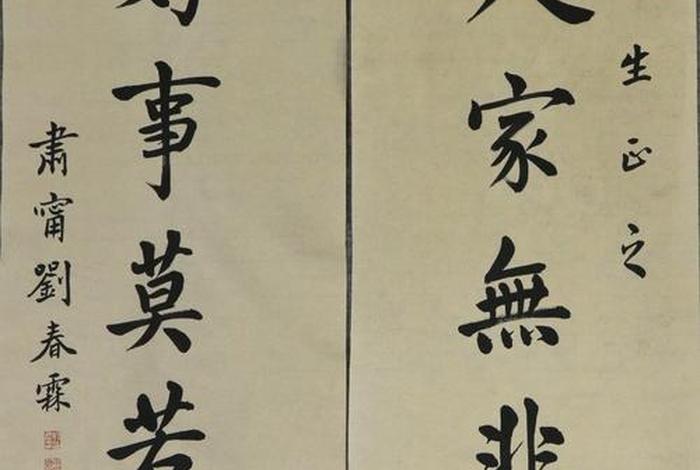 生正之
家無非
事莫若
肅甯劉春霖